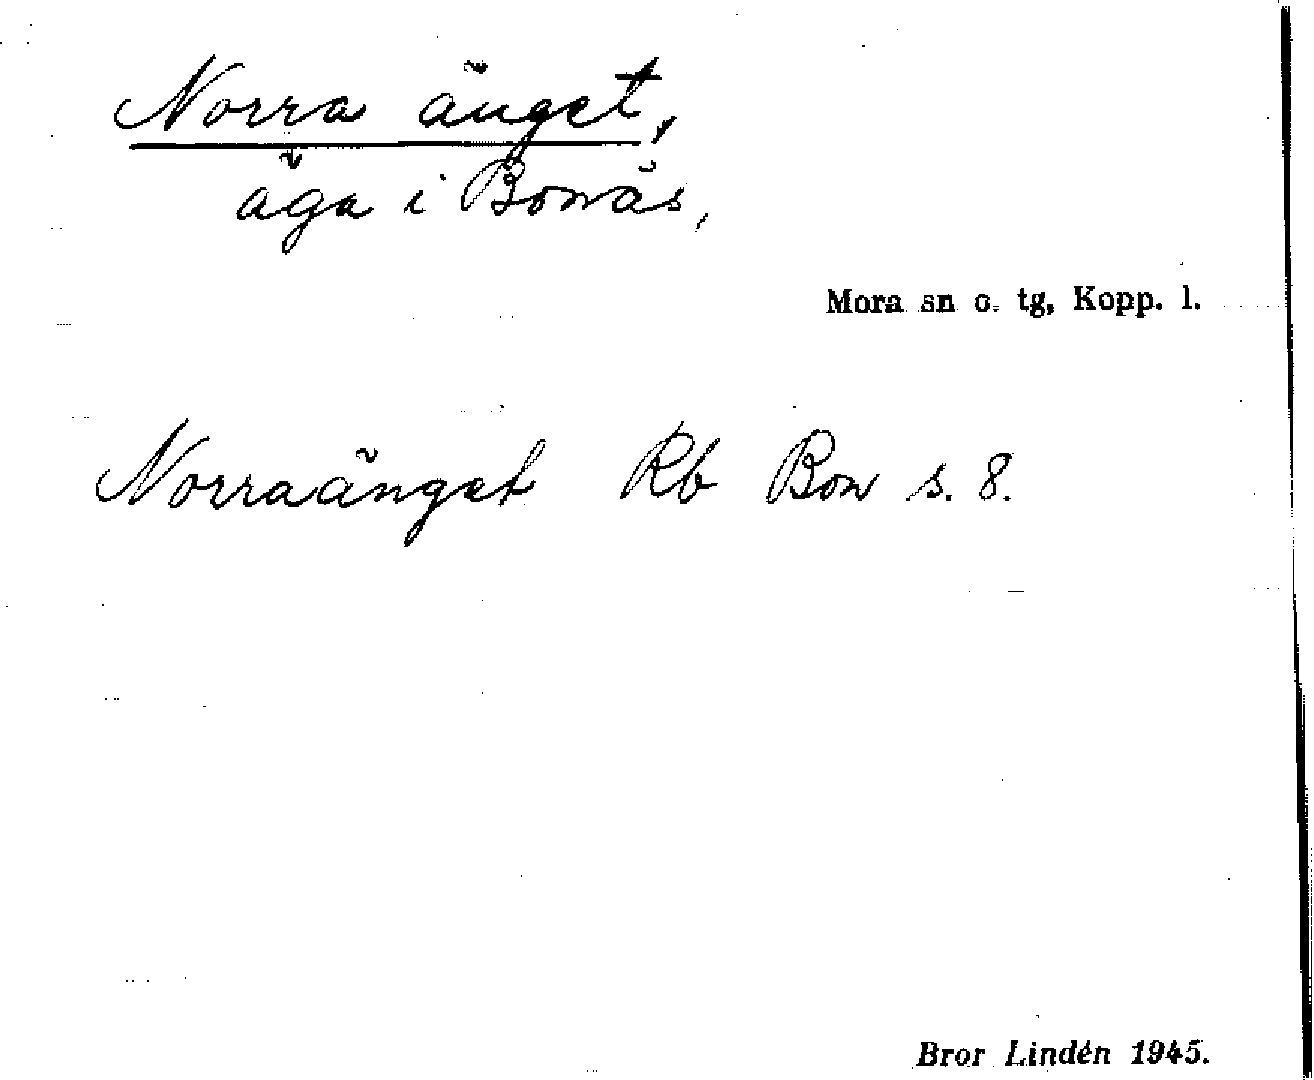 Norra änget,
äga i Bonäs,
Mora sn o. tg, Kopp. l.
Norraänget Rb Bon s. 8.
Bror Lindén 1945.